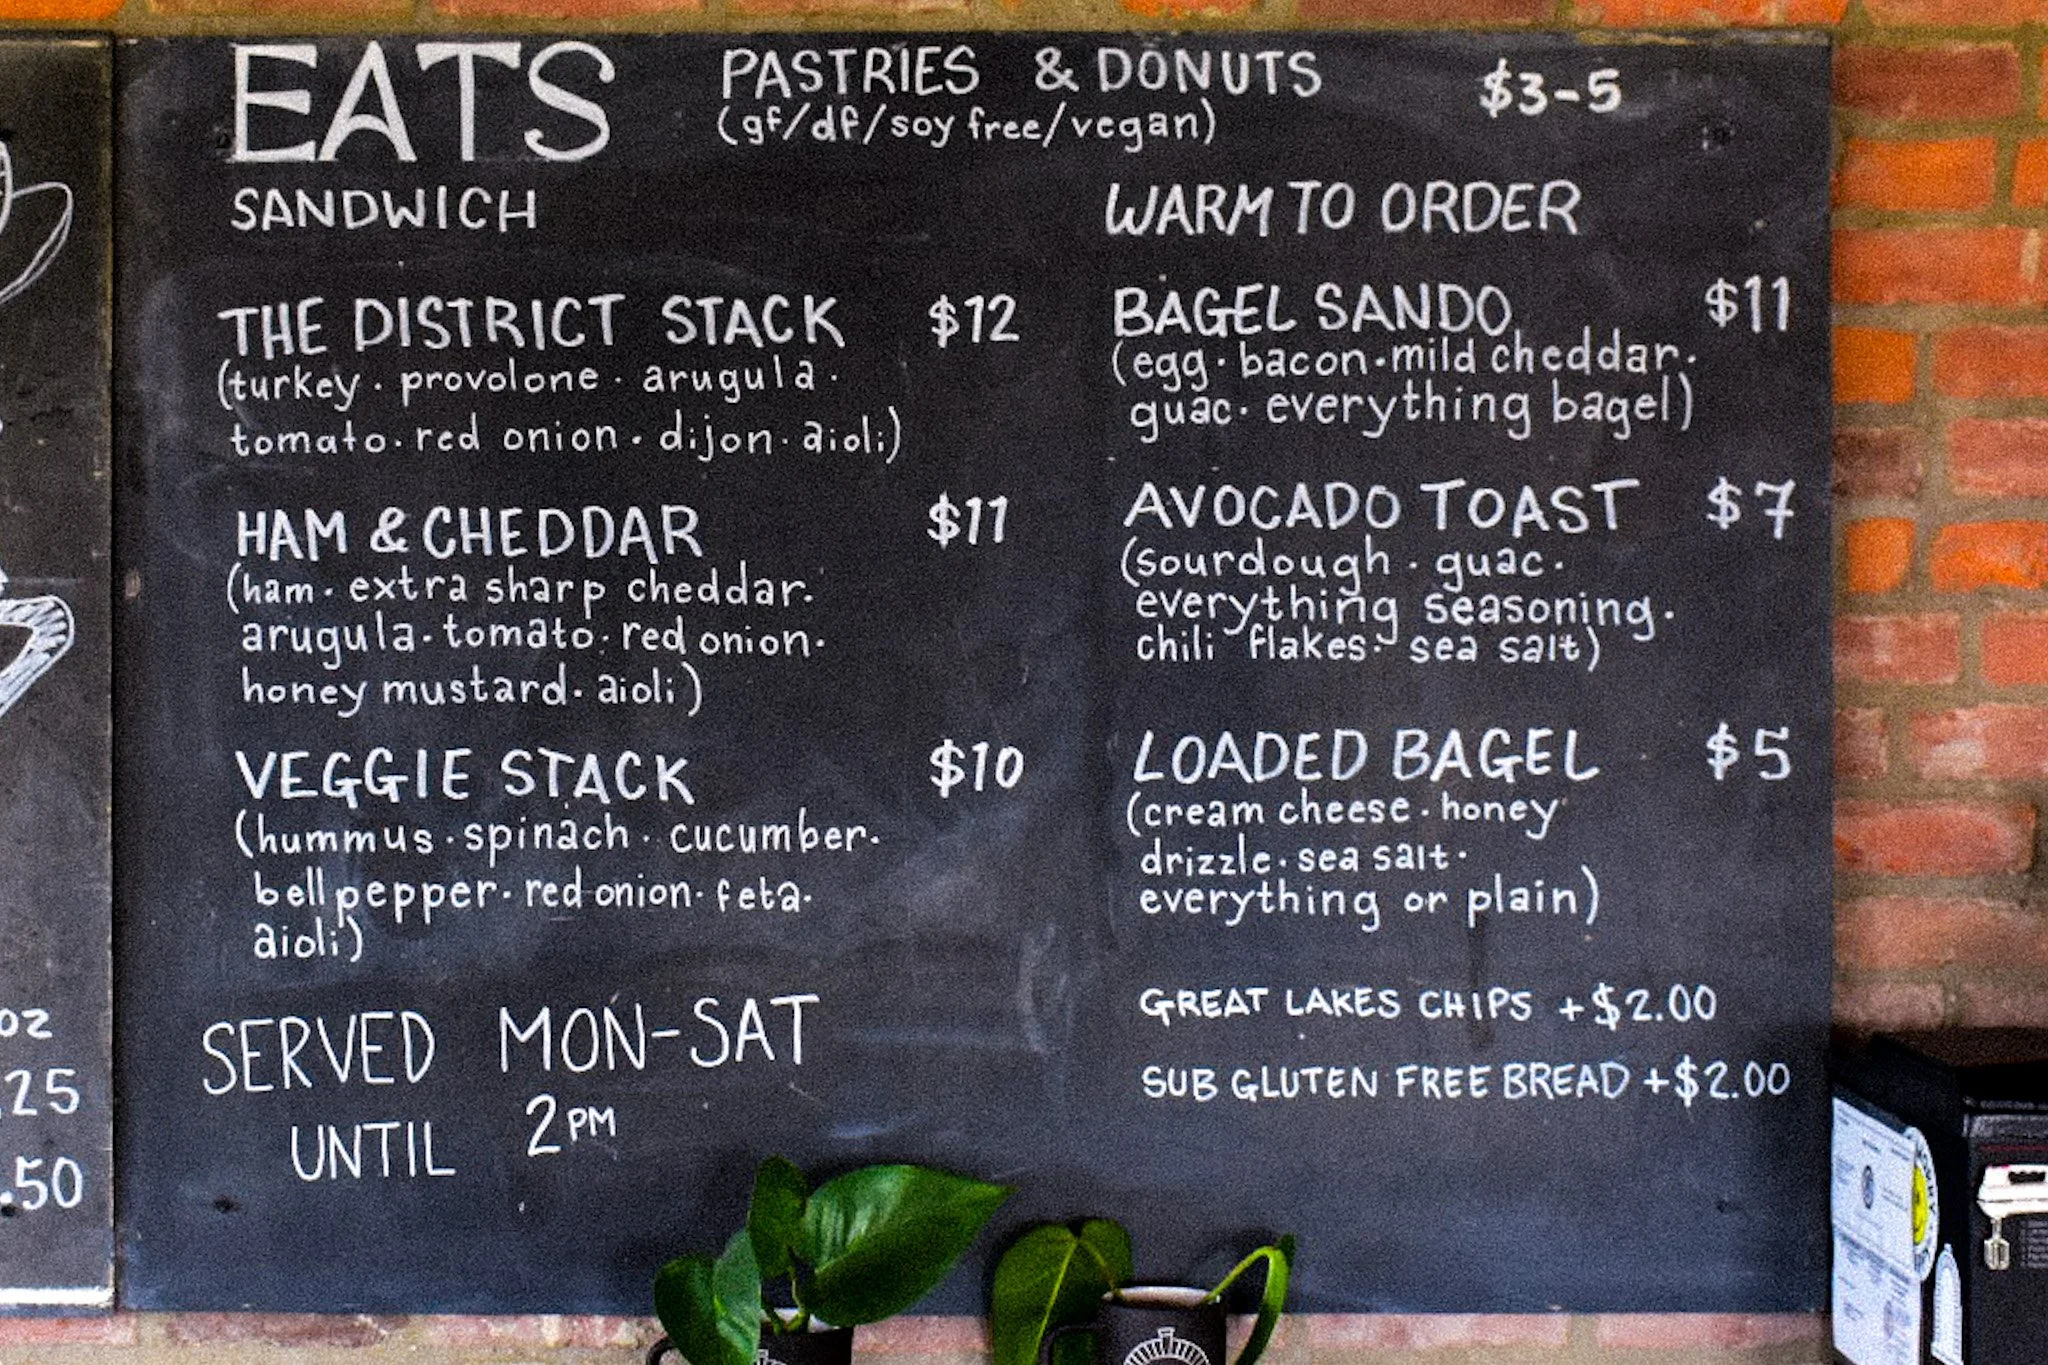 EATS
PASTRIES & DONUTS $3-5
(gf/df/soy free/vegan)
SANDWICH
THE DISTRICT STACK $12
(turkey · provolone · arugula ·
tomato · red onion · dijon · aioli)
HAM & CHEDDAR $11
(ham · extra sharp cheddar ·
arugula · tomato · red onion ·
honey mustard · aioli)
VEGGIE STACK $10
(hummus · spinach · cucumber ·
bell pepper · red onion · feta ·
aioli)
SERVED MON-SAT
UNTIL 2PM
WARM TO ORDER
BAGEL SANDO $11
(egg · bacon · mild cheddar ·
guac · everything bagel)
AVOCADO TOAST $7
(sourdough · guac ·
everything seasoning ·
chili flakes · sea salt)
LOADED BAGEL $5
(cream cheese · honey
drizzle · sea salt ·
everything or plain)
GREAT LAKES CHIPS +$2.00
SUB GLUTEN FREE BREAD +$2.00
oz
.25
.50